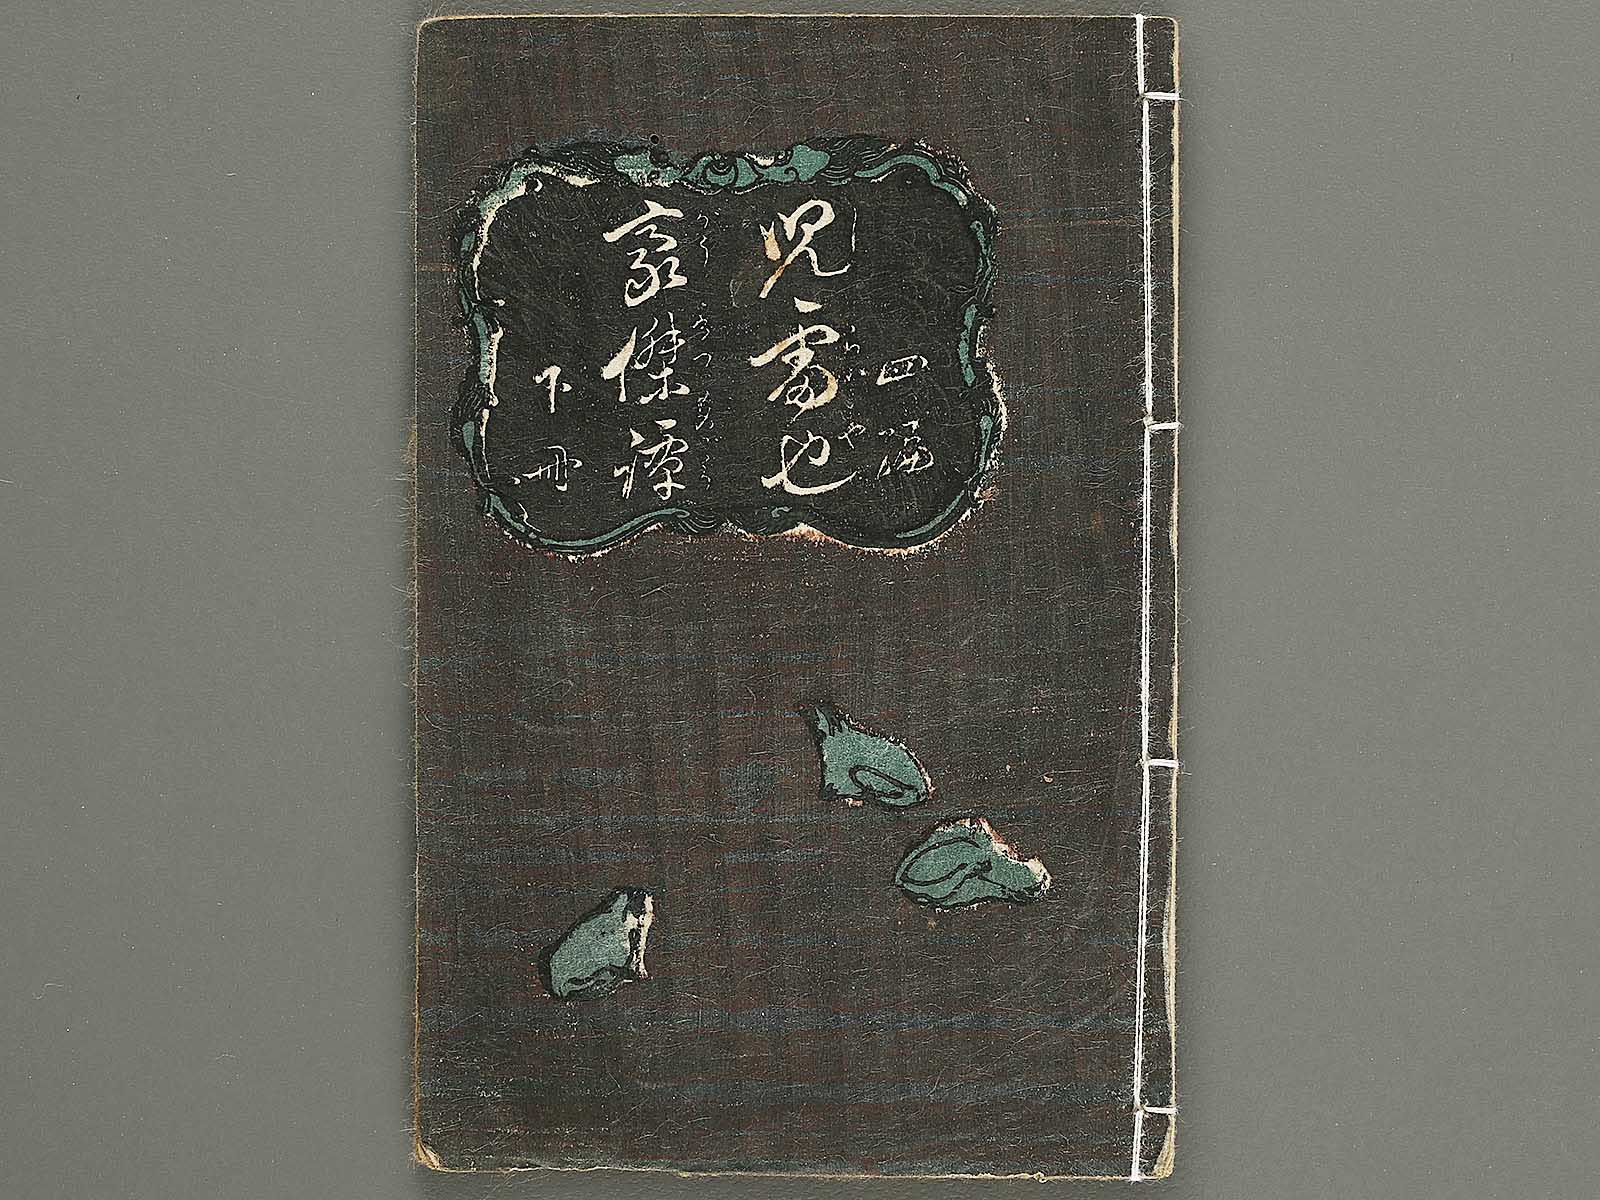 四編
児雷也
豪傑譚
下冊